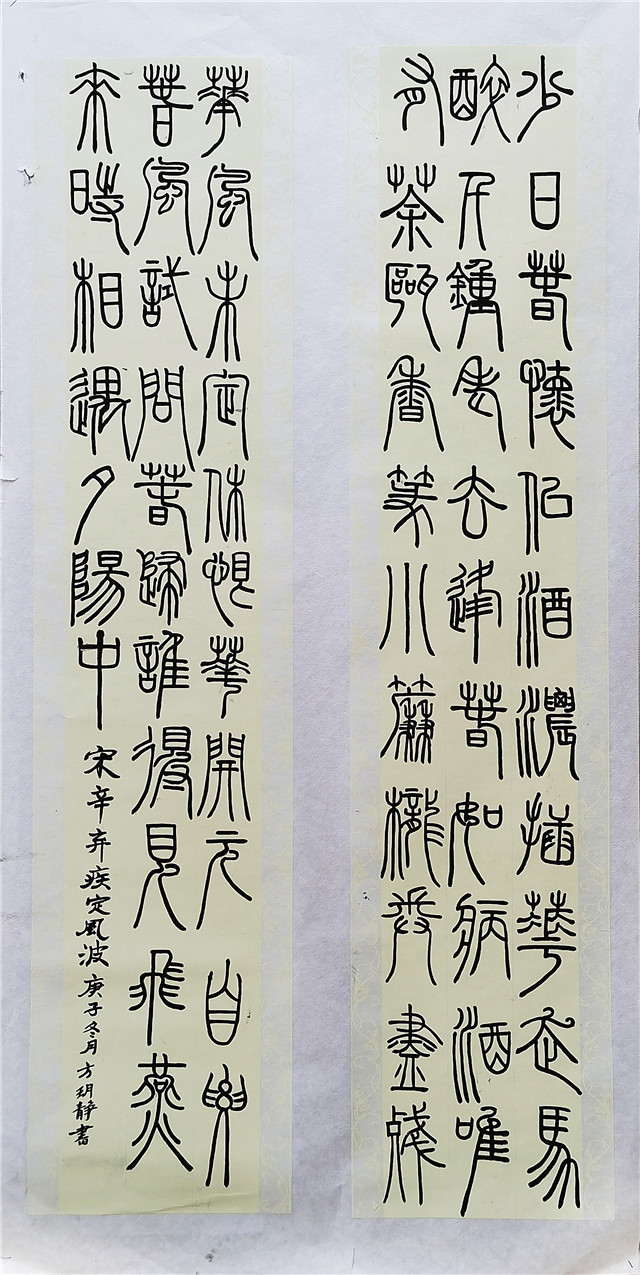 少日春懷佀酒濃插華走馬
醉千鍾老去逢春如病酒唯
有茶甌香篆小簾櫳卷盡殘
華風未定休恨華開元自要
春風試問春歸誰得見飛燕
來時相遇夕陽中
宋辛弃疾定風波庚子冬月方玥静書